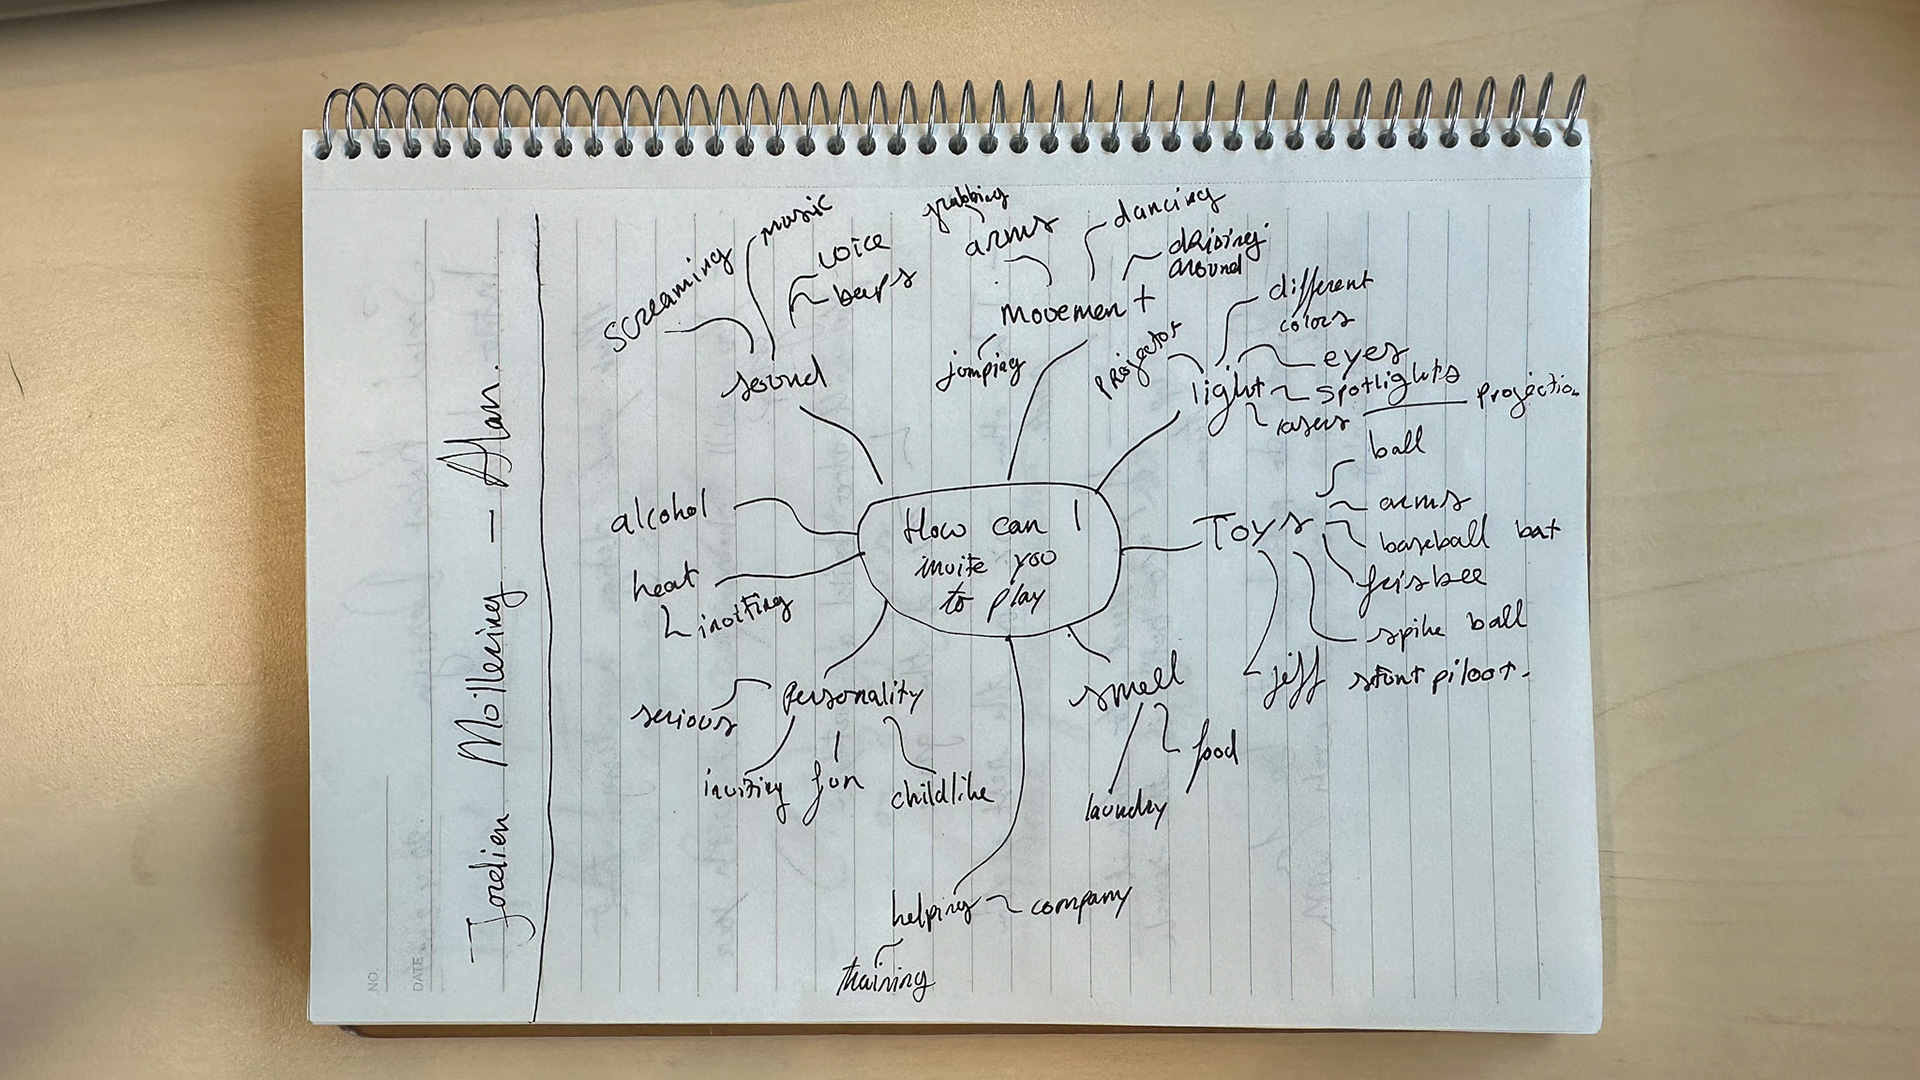 Jordien Moillering - Alan.
How can I
invite you
to play
sound
screaming
music
voice
beeps
movement
grabbing
arms
dancing
driving
around
jumping
light
projector
different
colors
eyes
spotlights
lasers
projection
Toys
ball
arms
baseball bat
frisbee
spike ball
jeff stunt piloot.
smell
food
laundry
helping
company
training
personality
serious
inviting
fun
childlike
heat
alcohol
NO.
DATE